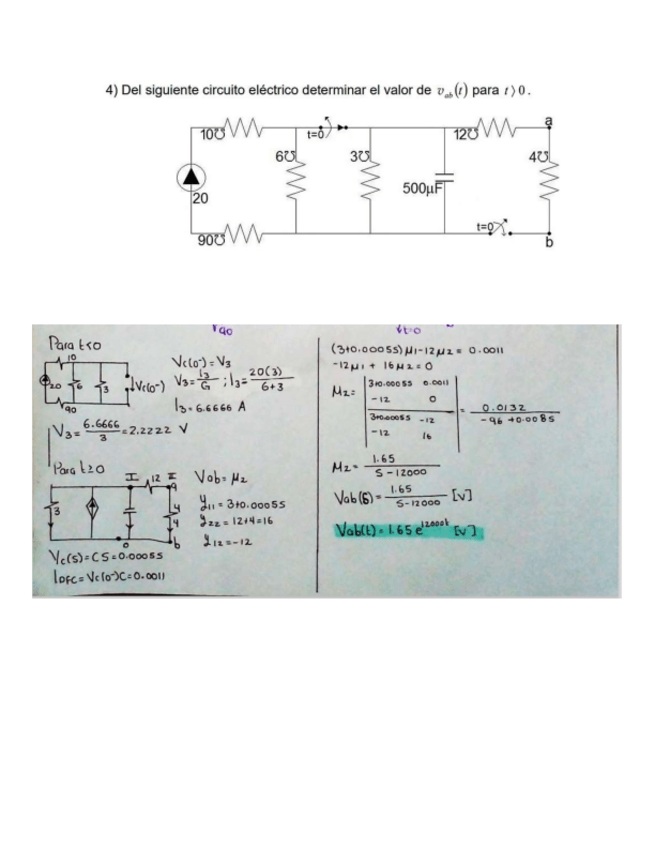 4) Del siguiente circuito eléctrico determinar el valor de v_ab(t) para t⟩0.
a
10℧
t=0
12℧
6℧
3℧
4℧
500μF
20
90℧
t=0
b
Para t<0
10
20
6
3
Vc(0-)
90
Vc(0-) = V3
V3= I3/G ; I3= 20(3)/6+3
I3= 6.6666 A
V3= 6.6666/3 = 2.2222 V
Para t≥0
I 12 II
a
3
4
4
0
b
Vab= μ2
y11 = 3+0.0005S
y22 = 12+4=16
y12 = -12
Vc(s)=CS=0.0005S
IDFC= Vc(0-)C=0.0011
t>0
(3+0.0005S)μ1-12μ2 = 0.0011
-12μ1 + 16μ2 = 0
μ2=
3+0.0005S 0.0011
-12 0
3+0.0005S -12
-12 16
= 0.0132/-96+0.008S
μ2= 1.65/S-12000
Vab(s)= 1.65/S-12000 [V]
Vab(t)= 1.65 e^12000t [V]